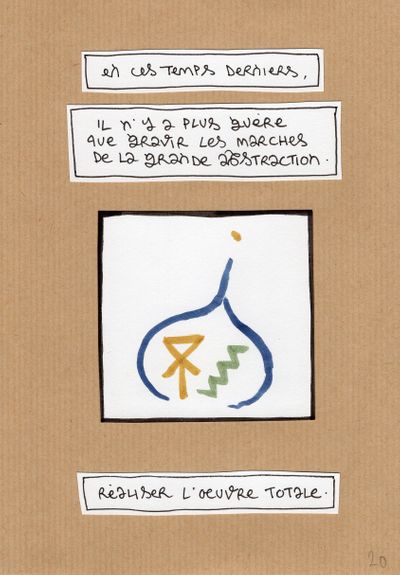 en ces temps derniers,
il n'y a plus guère
que gravir les marches
de la grande abstraction.
réaliser l'oeuvre totale.
20